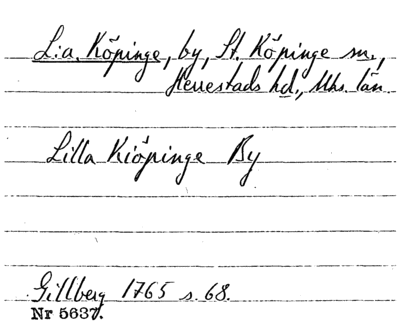 L:a. Köpinge, by, St. Köpinge sn.,
Herrestads hd., Mhs. län
Lilla Kiöpinge By
Gillberg 1765 s. 68.
Nr 5637.